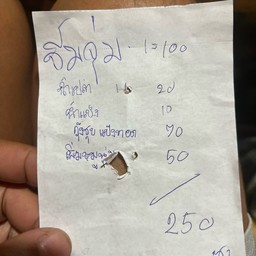 ส้มจุ่ม 1=100
น้ำเปล่า 1b 20
น้ำแข็ง 10
กุ้งชุบแป้งทอด 70
50
250